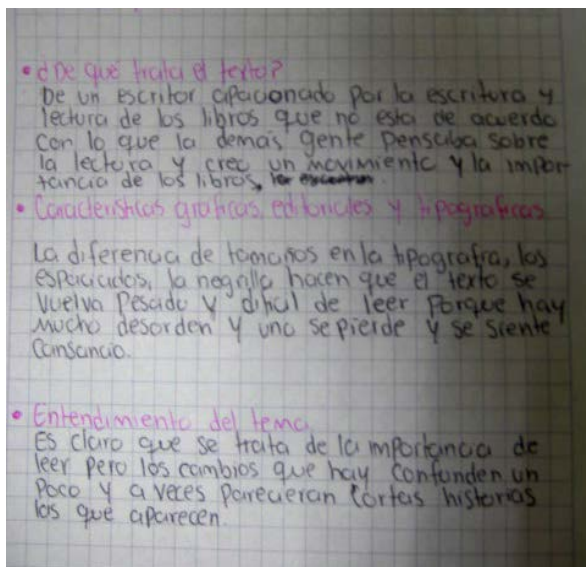 • ¿De que trata el texto?
De un escritor apacionado por la escritura y
lectura de los libros que no esta de acuerdo
con lo que la demas gente pensaba sobre
la lectura y creo un movimiento y la impor-
tancia de los libros,
• Caracteristicas graficas, editoriales y tipograficas
La diferencia de tamaños en la tipografia, los
espaciados, la negrilla hacen que el texto se
vuelva pesado y dificil de leer porque hay
mucho desorden y uno se pierde y se siente
cansancio.
• Entendimiento del tema
Es claro que se trata de la importancia de
leer pero los cambios que hay confunden un
poco y a veces parecieran cortas historias
las que aparecen.